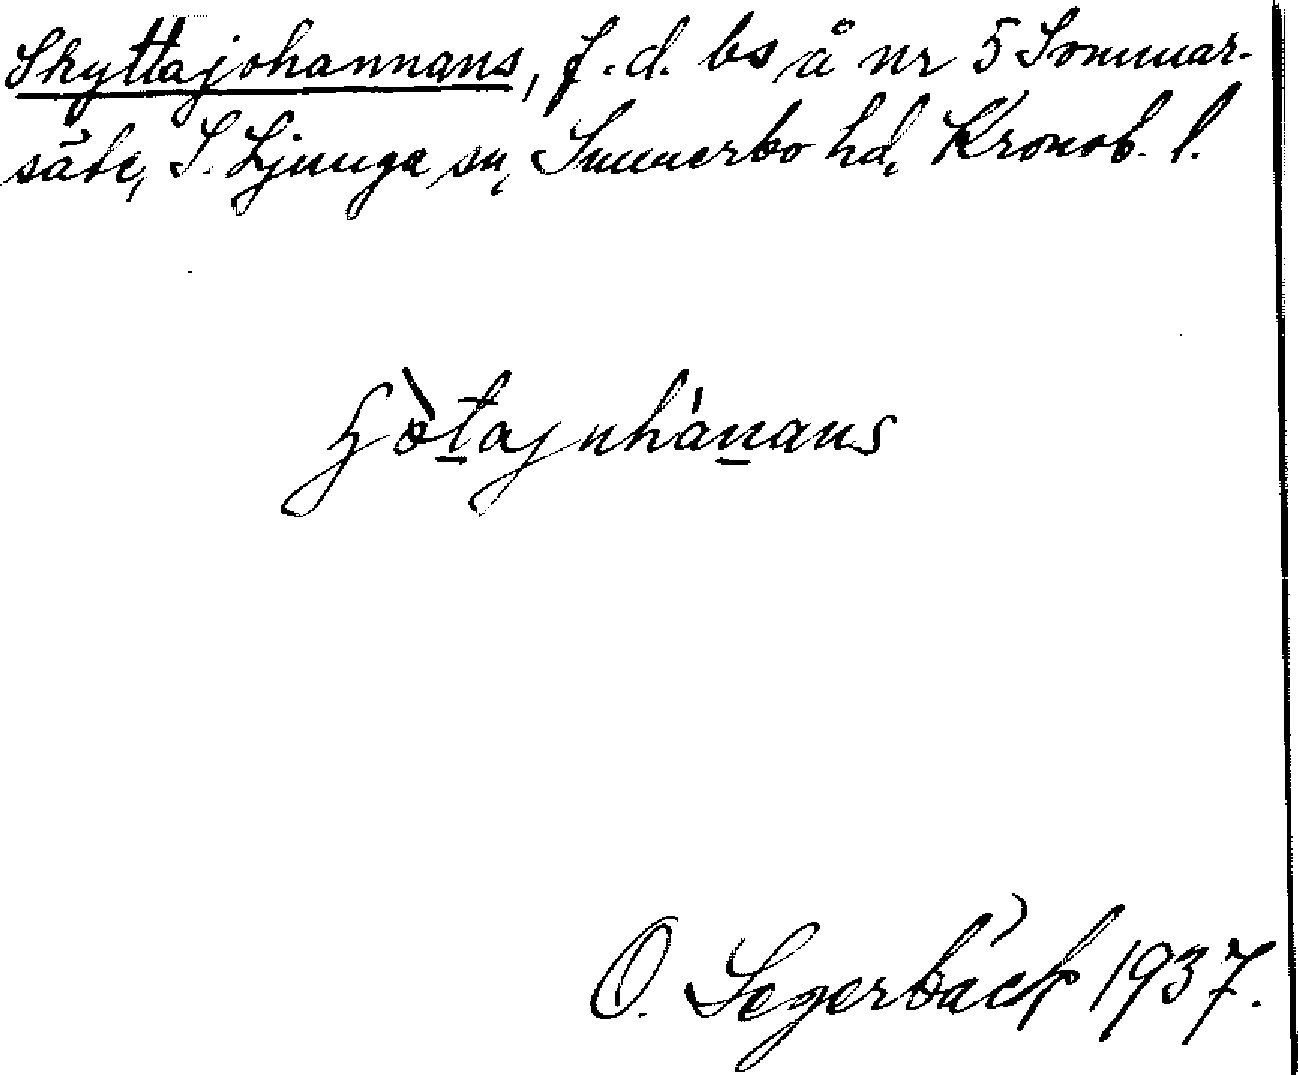 Skyttajohannans, f.d. bs å nr 5 Sommar-
säte, S. Ljunga sn, Sunnerbo hd, Kronob. l.
O. Segerbäck 1937.